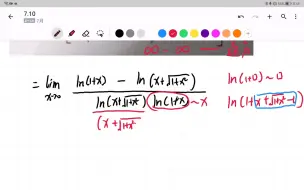 7.10
= lim x→0 ln(1+x) - ln(x+√1+x²) / ln(x+√1+x²) ln(1+x) ~x
(x+√1+x²
ln(1+0) ~ 0
ln(1+x+√1+x²-1)